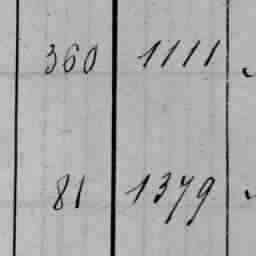 360 1111
81 1379